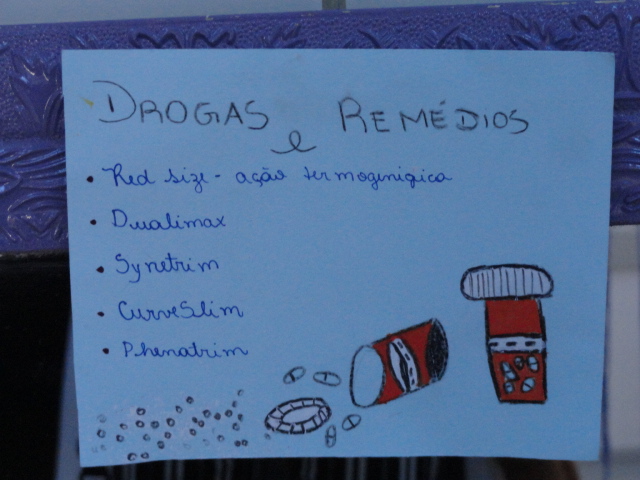 DROGAS e REMÉDIOS
• Red size - ação termogenigica
• Dualimax
• Synetrim
• CurveSlim
• Phenatrim